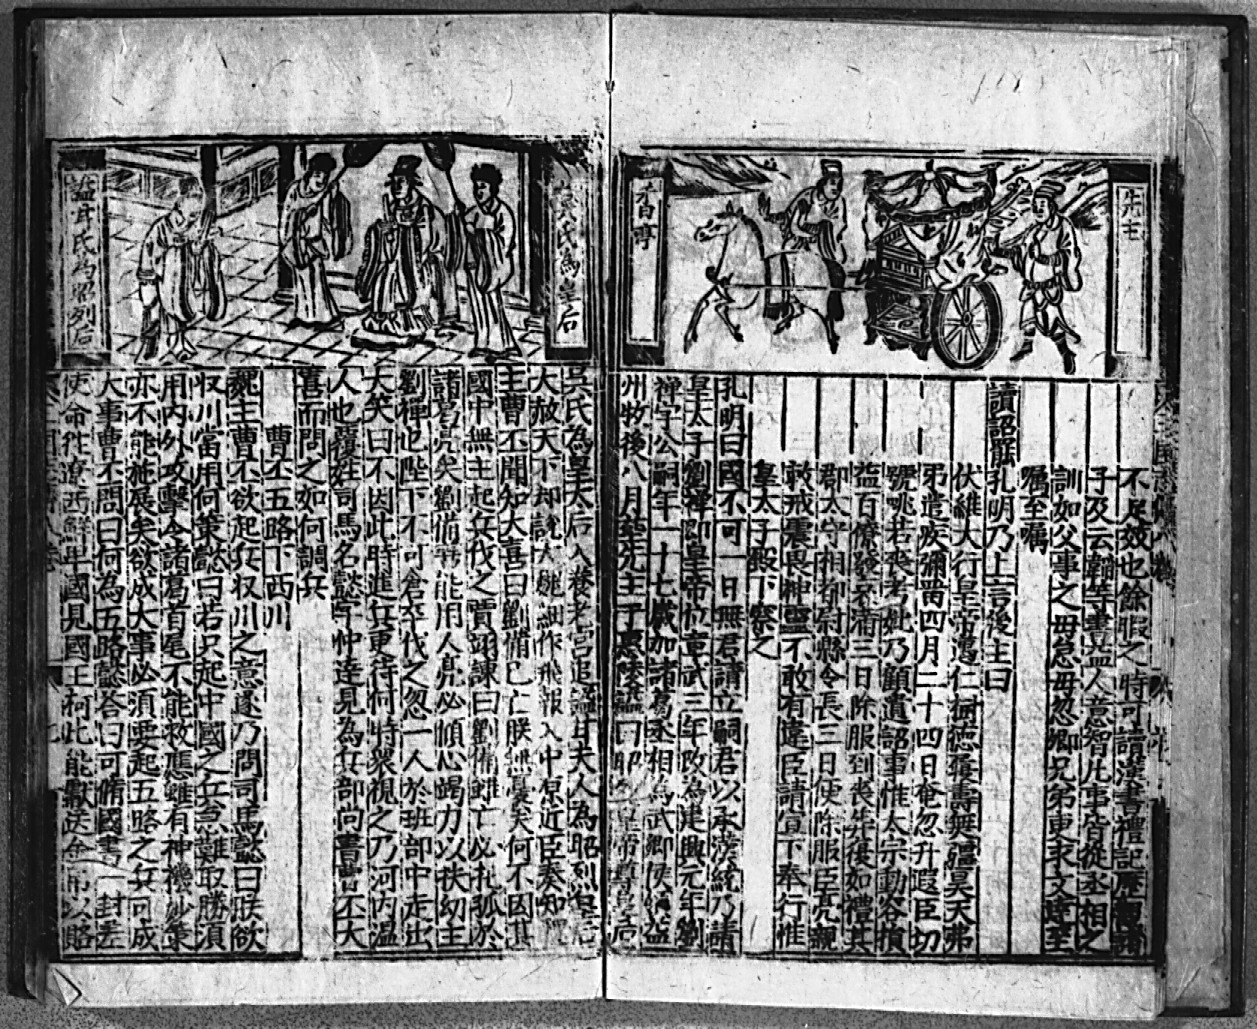 先主
香亭
不足效也餘暇之時可讀漢書禮記歷觀諸
子及云韜等書益人意智凡事皆從丞相之
訓如父事之毋怠毋忽卿兄弟更求文達至
囑至囑
讀詔罷孔明乃上言後主曰
伏維大行皇帝邁仁樹德覆壽無疆昊天弗
弔遘疾彌留四月二十四日奄忽升遐臣切
號咷若喪考妣乃顧遺詔事惟太宗動容損
益百僚發哀滿三日除服到喪葬復如禮其
郡太守相都尉縣令長三日便除服臣亮親
敕戒震畏神靈不敢有違臣請宣下奉行惟
皇太子殿下察之
孔明曰國不可一日無君請立嗣君以承漢統乃請
皇太子劉禪即皇帝位章武三年改為建興元年劉
禪字公嗣年一十七歲加諸葛丞相為武鄉侯領益
州牧後八月葬先主于惠陵謚曰昭皇帝尊皇后
吳氏為皇后
謚甘氏為昭烈后
吳氏為皇太后入養老宮追謚甘夫人為昭烈皇后
大赦天下却說大魏細作飛報入中原近臣奏知魏
主曹丕聞知大喜曰劉備已亡朕無憂矣何不因其
國中無主起兵伐之賈詡諫曰劉備雖亡必托孤於
諸葛亮矣劉備旣能用人亮必傾心竭力以扶幼主
劉禪也陛下不可倉卒伐之忽一人於班部中走出
大笑曰不因此時進兵更待何時衆視之乃河內溫
人也覆姓司馬名懿字仲達見為兵部尚書曹丕大
喜而問之如何調兵
曹丕五路下西川
魏主曹丕欲起兵收川之意遂乃問司馬懿曰朕欲
收川當用何策懿曰若只起中國之兵急難取勝須
用內外攻擊令諸葛首尾不能救應雖有神機妙策
亦不能施展矣欲成大事必須要起五路之兵可成
大事曹丕問曰何為五路懿答曰可脩國書一封差
使命往遼西鮮卑國見國王軻比能獻送金帛以賂